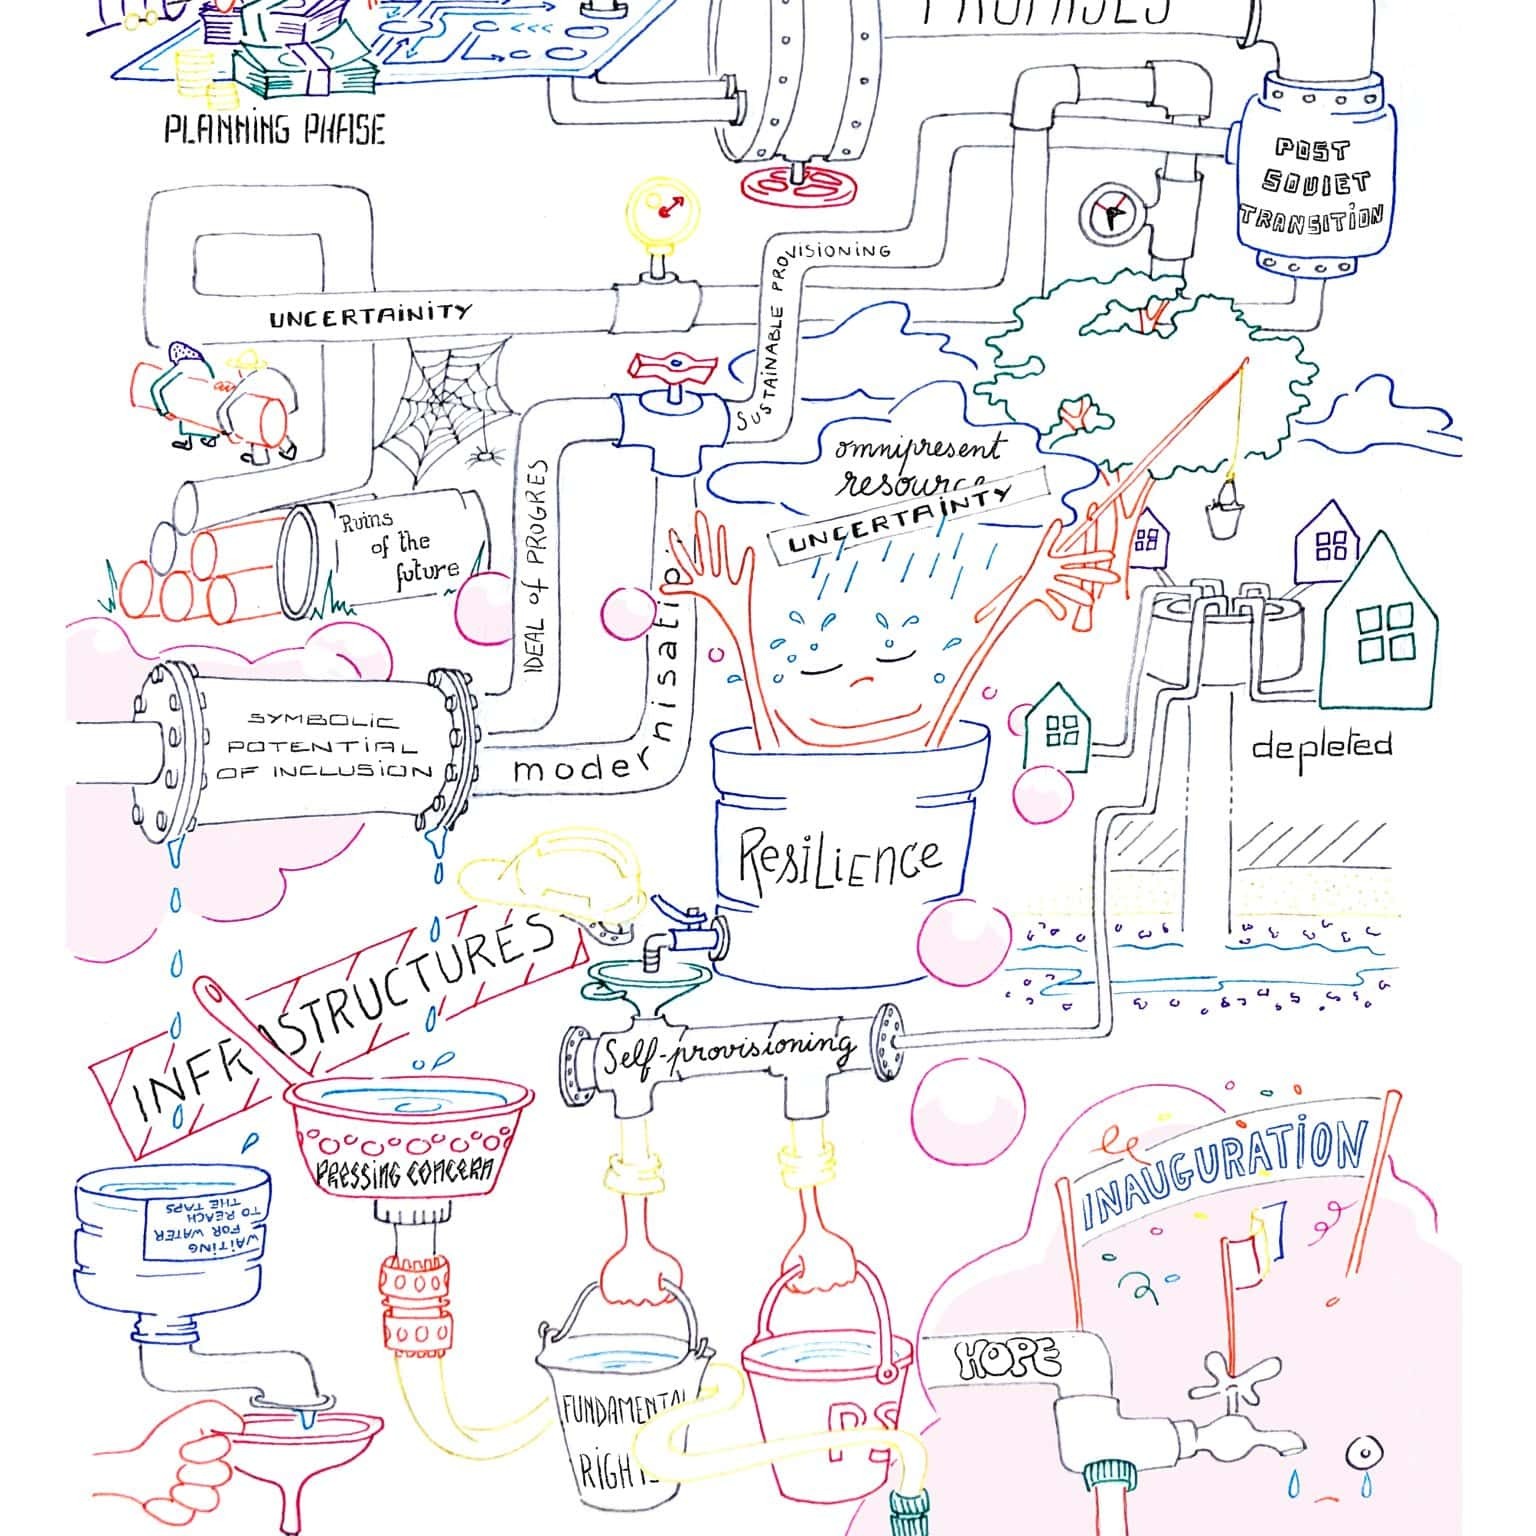 PROMISES
PLANNING PHASE
POST
SOVIET
TRANSITION
SUSTAINABLE PROVISIONING
UNCERTAINITY
omnipresent
resource
UNCERTAINTY
Ruins
of the
future
IDEAL of PROGRES
modernisation
SYMBOLIC
POTENTIAL
OF INCLUSION
depleted
RESILIENCE
INFRASTRUCTURES
Self-provisioning
PRESSING CONCERN
WAITING
FOR WATER
TO REACH
THE TAPS
INAUGURATION
HOPE
FUNDAMENTAL
RIGHTS